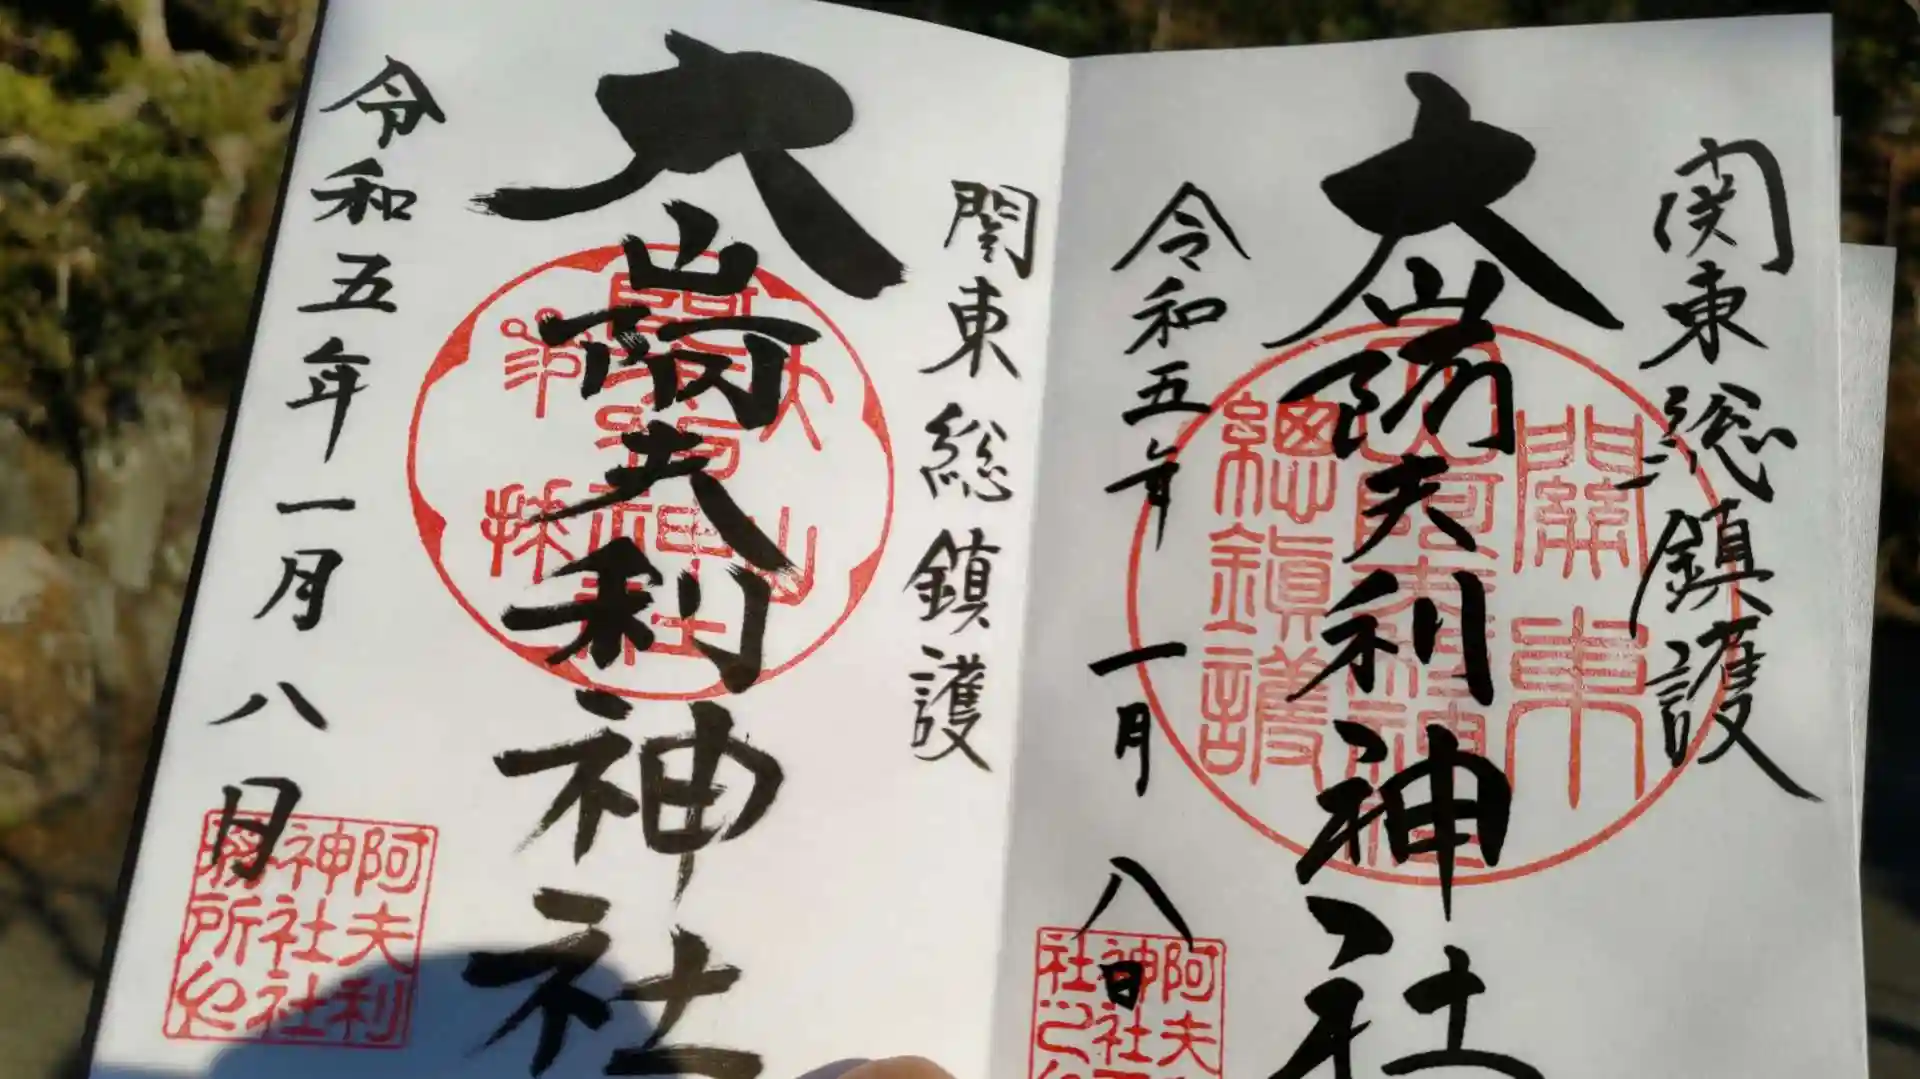 関東総鎮護
大山阿夫利神社
令和五年一月八日
関東
總鎮護
阿夫
神社
関東総鎮護
大山阿夫利神社
令和五年一月八日
阿夫利
神社社
務所